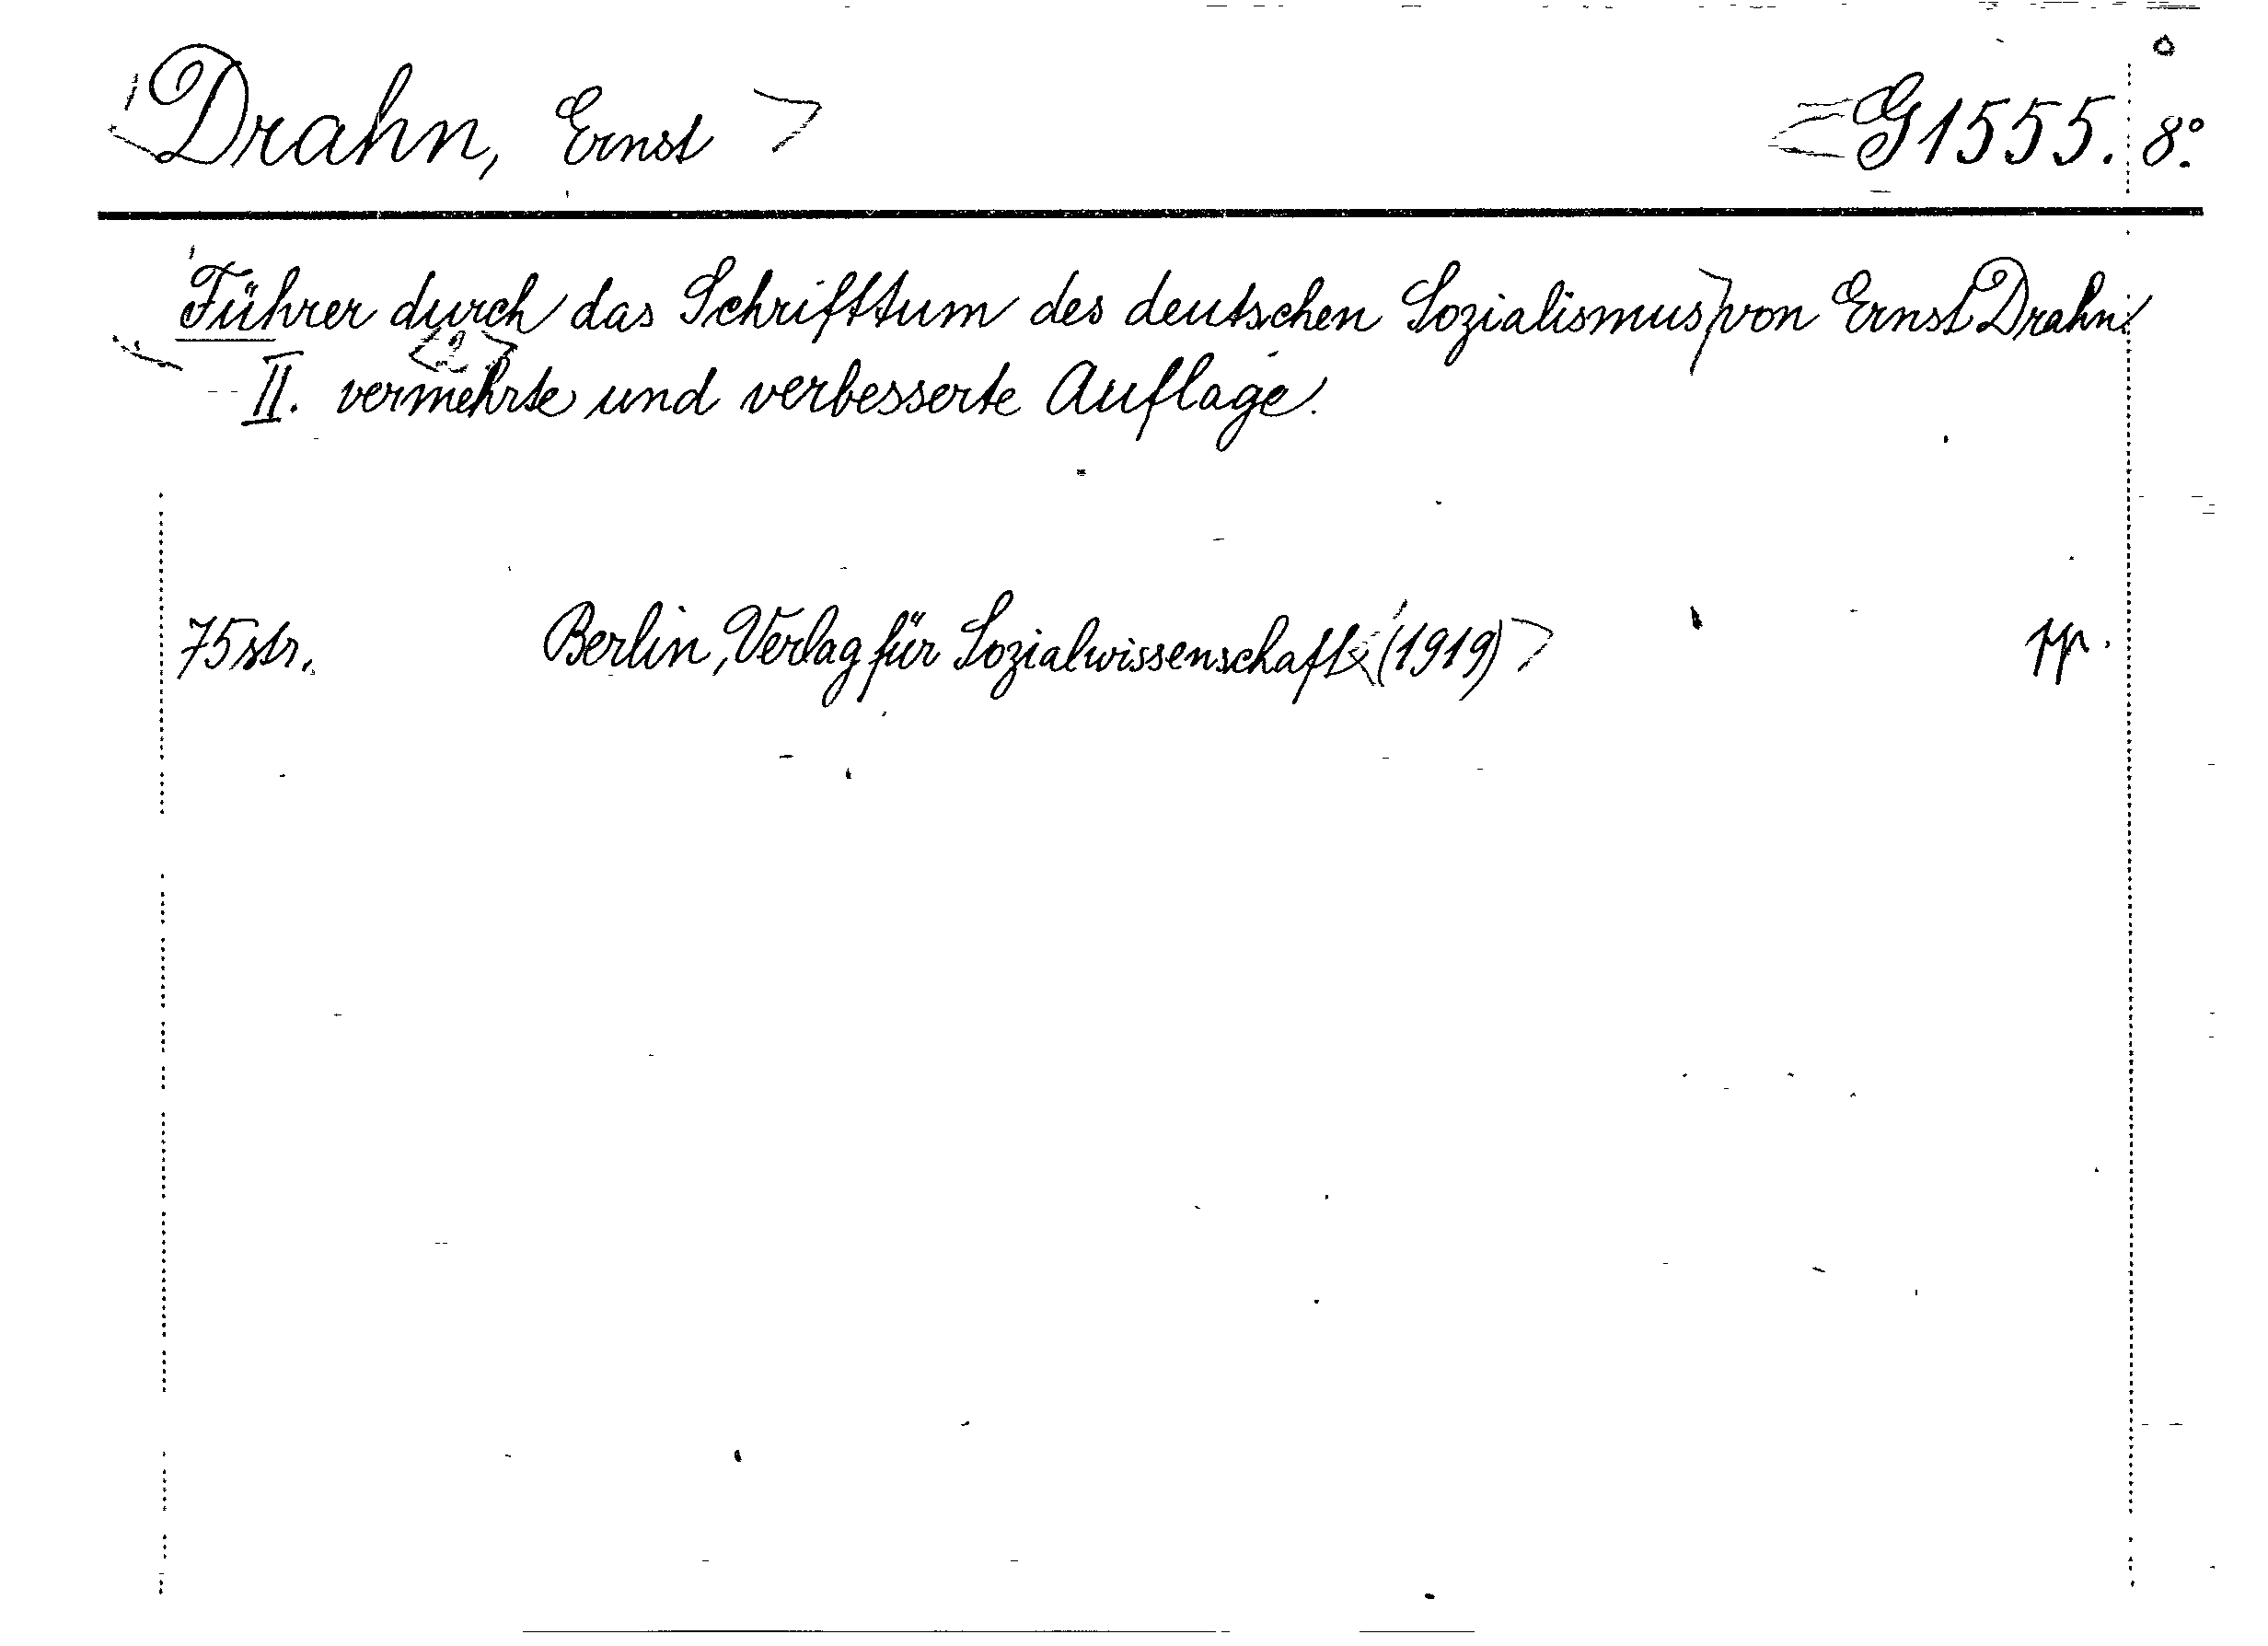 Drahn, Ernst G1555. 8°.
Führer durch das Schrifttum des deutschen Sozialismus von Ernst Drahn.
<2>
II. vermehrte und verbesserte Auflage.
75 str. Berlin, Verlag für Sozialwissenschaft (1919)